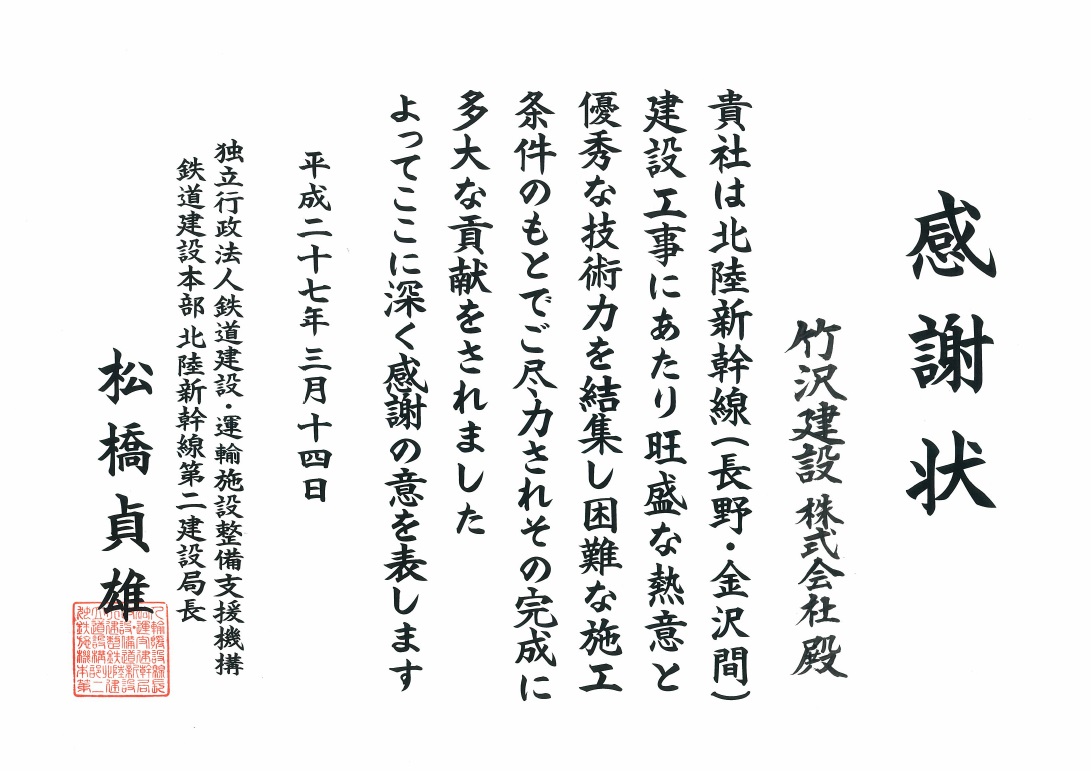 感謝状
竹沢建設株式会社殿
貴社は北陸新幹線(長野・金沢間)
建設工事にあたり旺盛な熱意と
優秀な技術力を結集し困難な施工
条件のもとでご尽力されその完成に
多大な貢献をされました
よってここに深く感謝の意を表します
平成二十七年三月十四日
独立行政法人鉄道建設・運輸施設整備支援機構
鉄道建設本部北陸新幹線第二建設局長
松橋貞雄